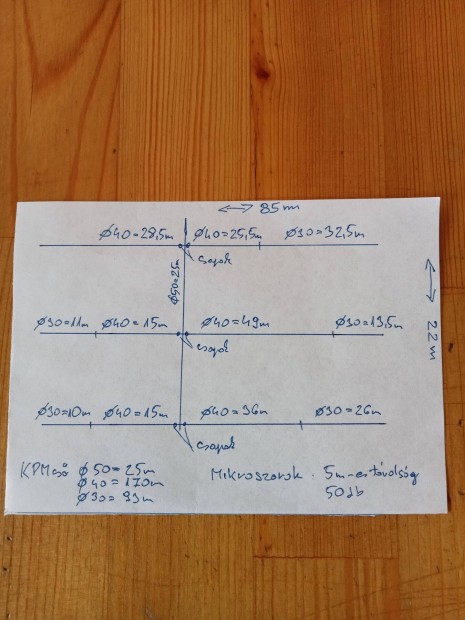 ↔ 85m
Ø40=28,5m Ø40=25,5m Ø30=32,5m
csapok
Ø50=25m
Ø30=11m Ø40=15m Ø40=49m Ø30=13,5m
csapok
↔ 22m
Ø30=10m Ø40=15m Ø40=36m Ø30=26m
csapok
KPMcső Ø50=25m
Ø40=170m
Ø30=93m
Mikroszórók . 5m-es távolság
50db